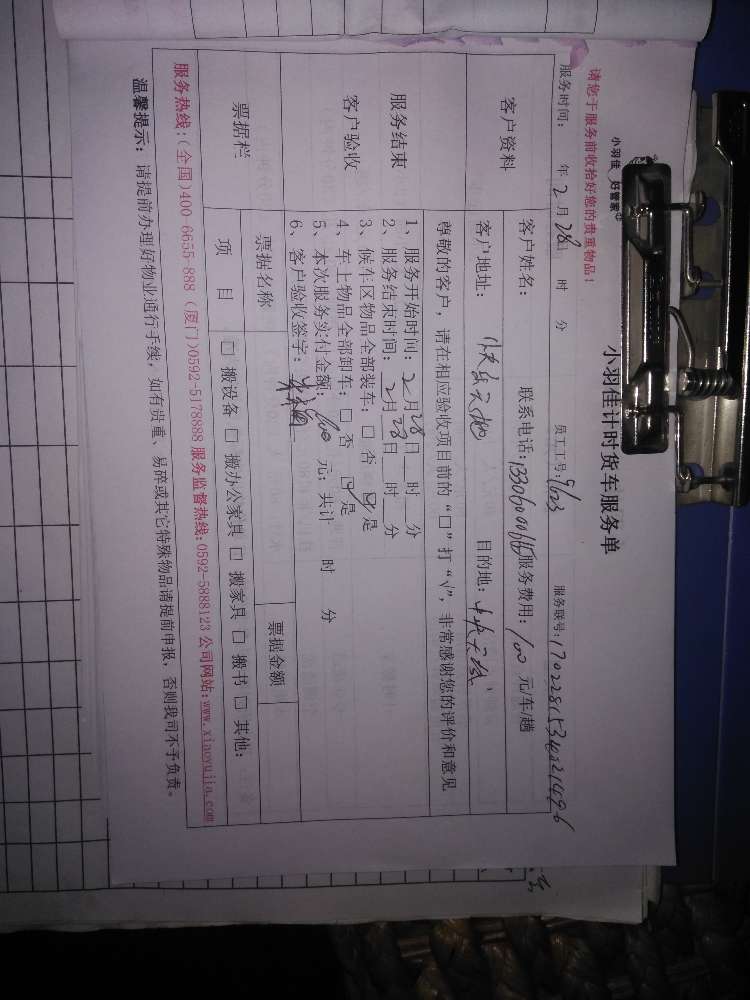 小羽佳 好管家
小羽佳计时货车服务单
请您于服务前收拾好您的贵重物品！
服务时间： 年2月28日 时 分 员工工号：9123 服务联号：17022815340021496
客户资料
客户姓名： 联系电话： 服务费用：100 元/车/趟
客户地址： 目的地：
尊敬的客户，请在相应验收项目前的“□”打“√”，非常感谢您的评价和意见
服务结束
客户验收
1、服务开始时间：2月28日 时 分
2、服务结束时间：2月28日 时 分
3、候车区物品全部装车：□ 否 ☑ 是
4、车上物品全部卸车：□ 否 ☑ 是
5、本次服务实付金额： 元；共计 时 分
6、客户验收签字：
票据栏
票据名称 票据金额
项 目 □ 搬设备 □ 搬办公家具 □ 搬家具 □ 搬书 □ 其他：
服务热线：(全国)400-6655-888 (厦门)0592-5178888 服务监督热线:0592-5888123 公司网站:www.xiaoyujia.com
温馨提示： 请提前办理好物业通行手续，如有贵重、易碎或其它特殊物品请提前申报，否则我司不予负责。